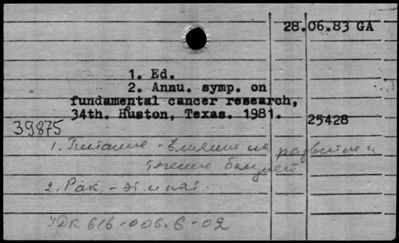 28.06.83 GA
1. Ed.
2. Annu. symp. on
fundamental cancer research,
34th. Huston, Texas. 1981.
39875
25428
1. Питание - влияние на развитие и
течение болезней
2. Рак - эт. и пат.
УДК 616-006.6-02